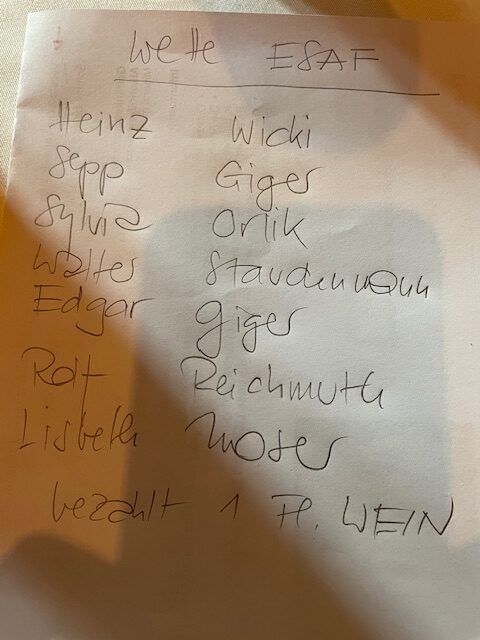 Wette ESAF
Heinz Wicki
Sepp Giger
Sylvia Orlik
Walter Staudenmann
Edgar Giger
Rolf Reichmuth
Lisbeth Moser
bezahlt 1 Fl. WEIN